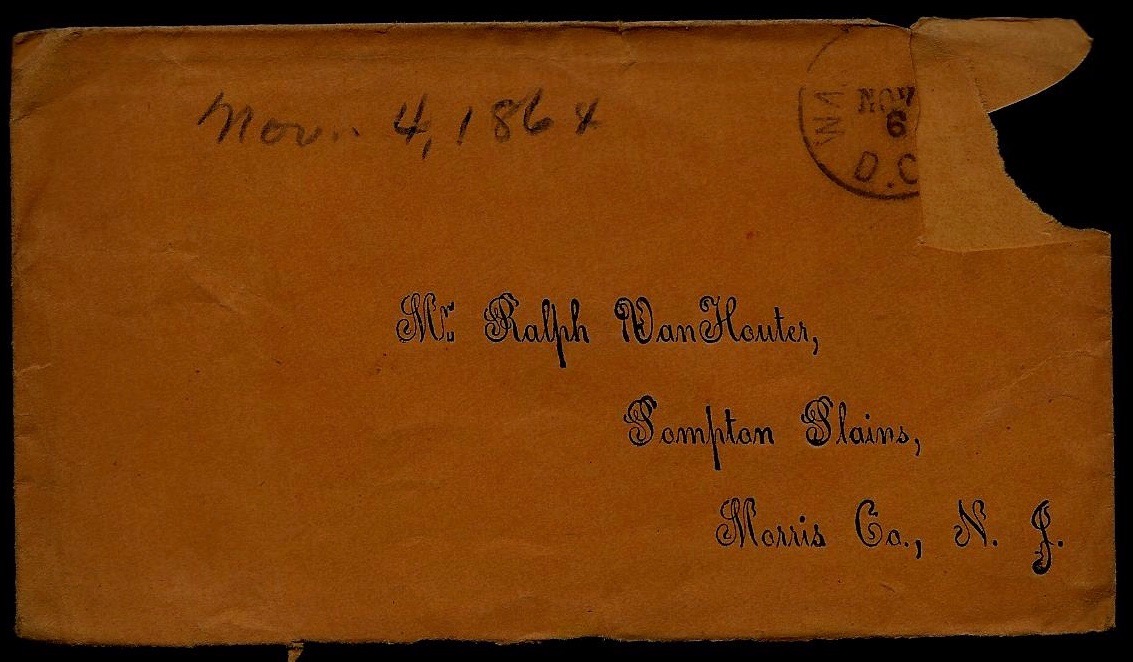 Nov. 4, 1864
WA
NOV
6
D.C
Mr. Ralph VanHouter,
Pompton Plains,
Morris Co., N. J.